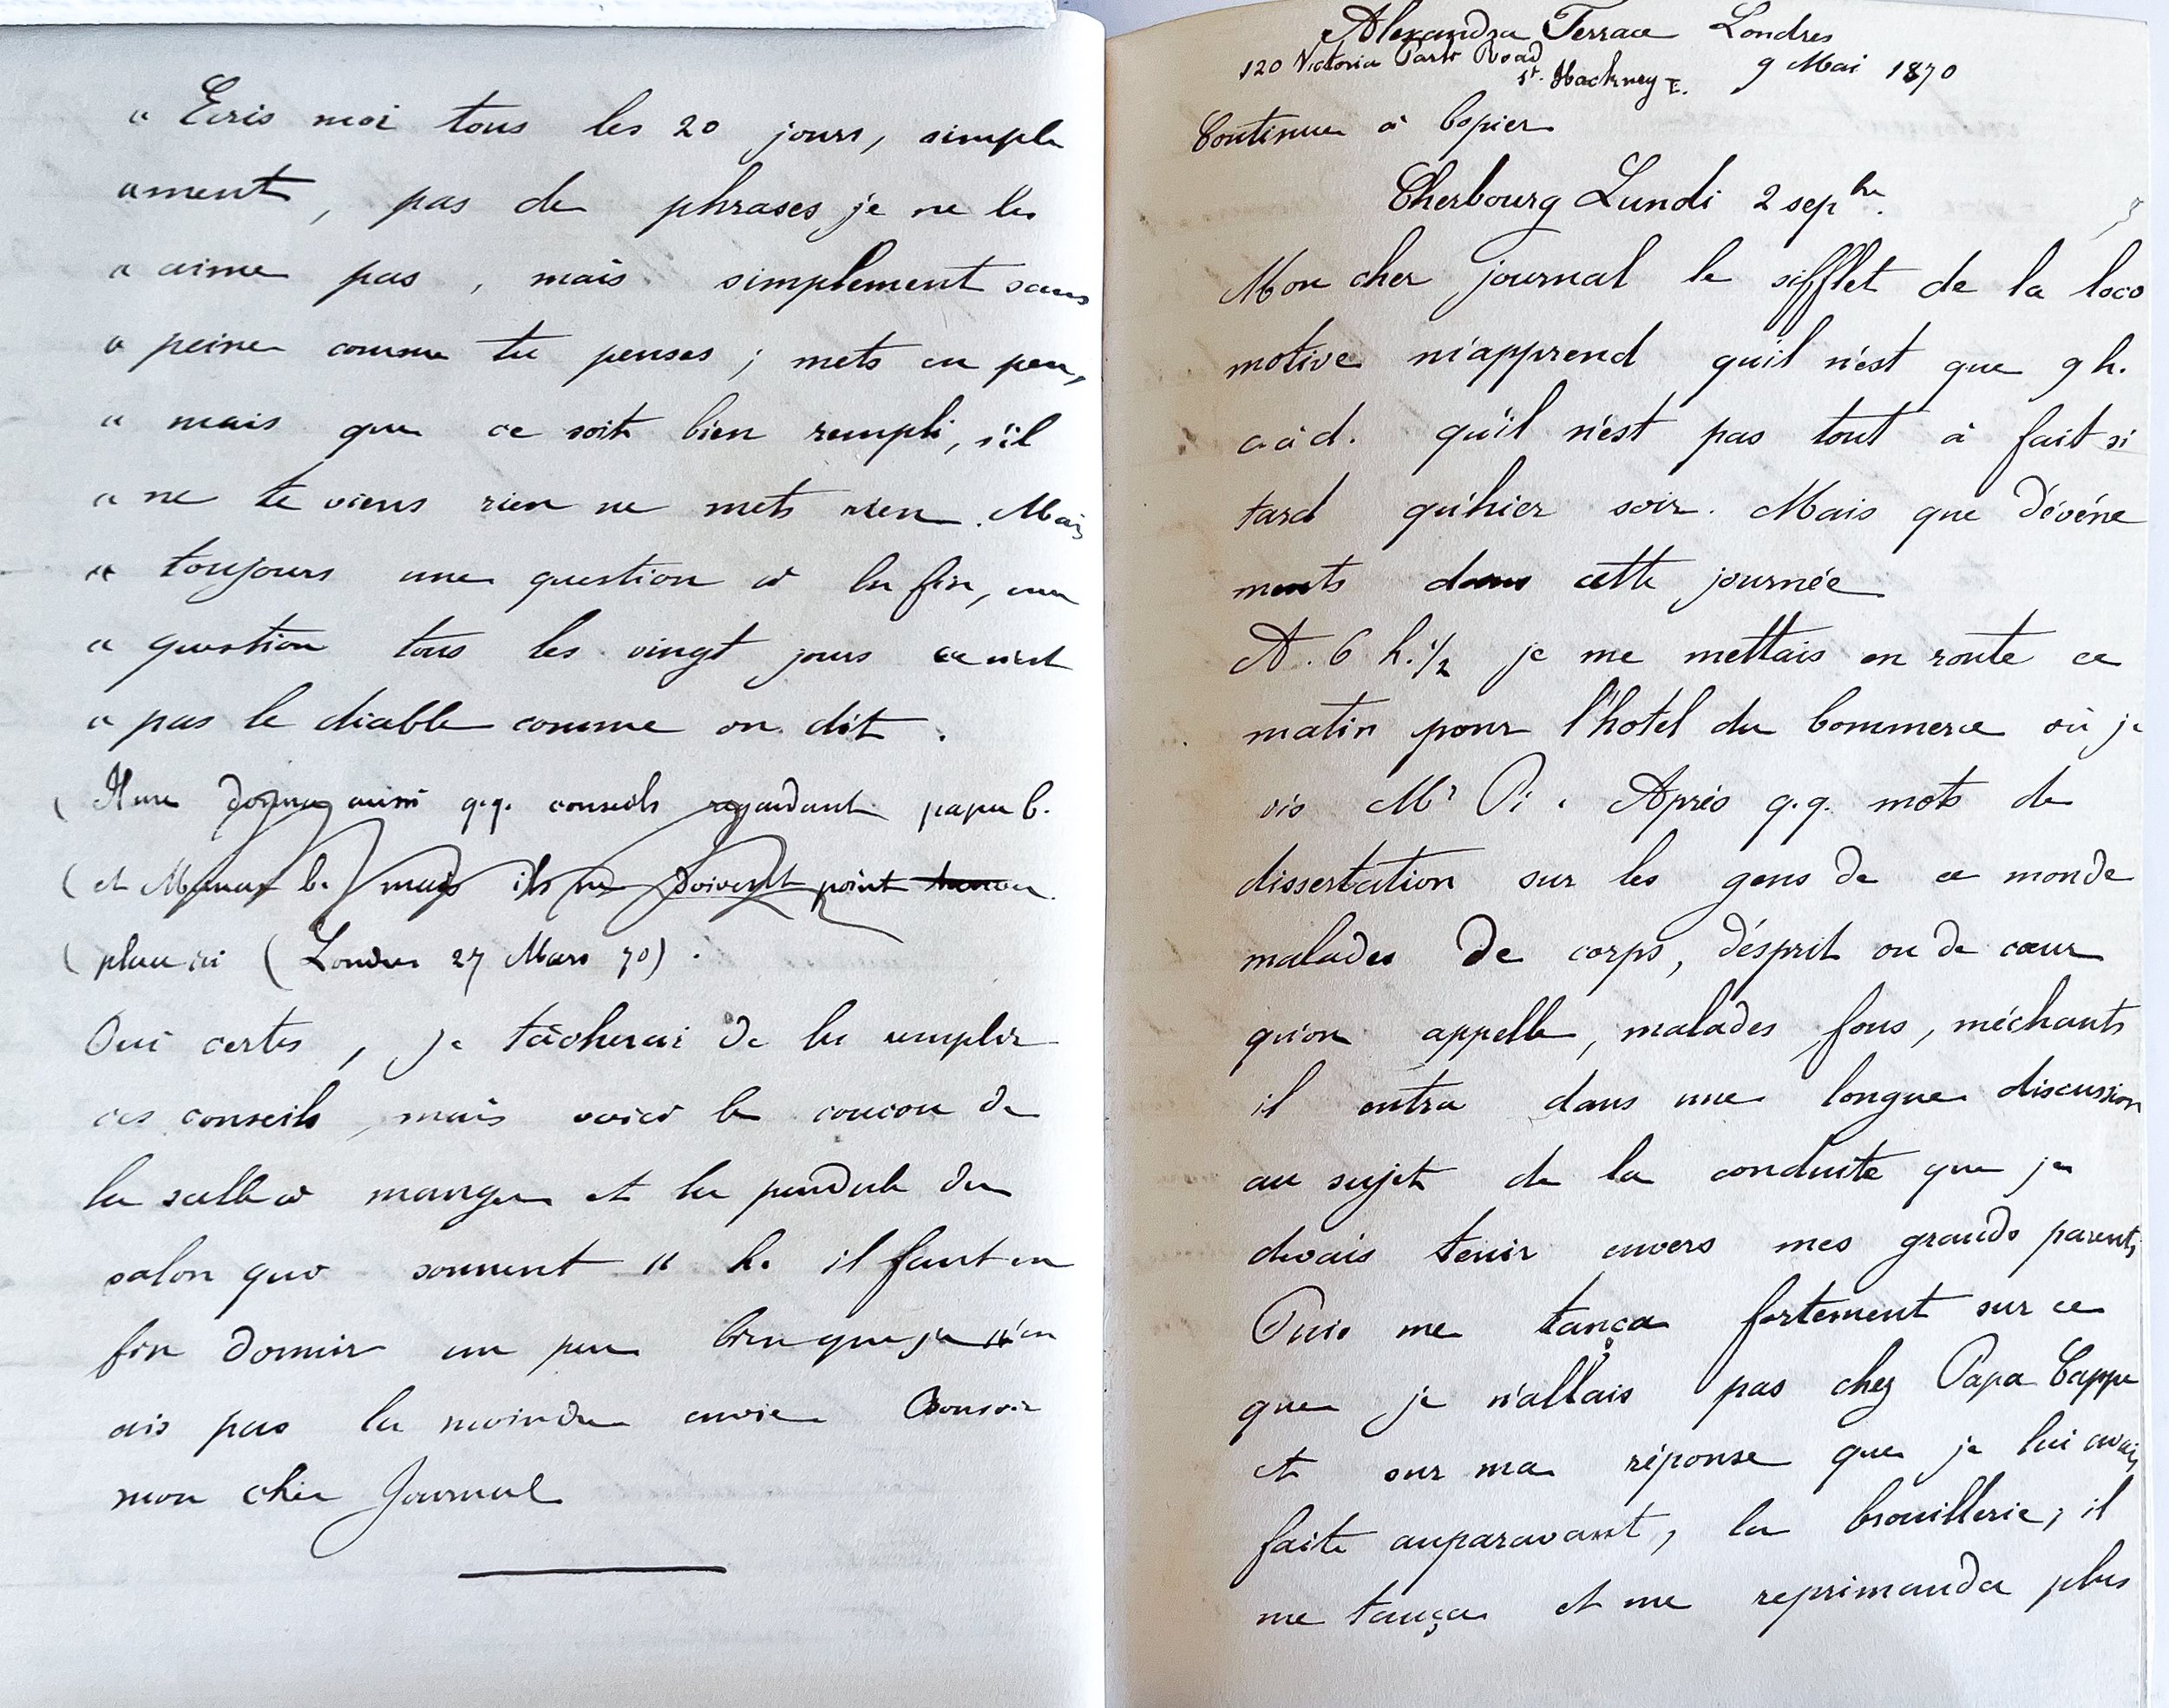 " Ecris moi tous les 20 jours, simple
" ment, pas de phrases je ne les
" aime pas, mais simplement sans
" peine comme tu penses ; mets en peu,
" mais que ce soit bien rempli, s'il
" ne te viens rien ne mets rien. Mais
" toujours une question à la fin, une
" question tous les vingt jours ce n'est
" pas le diable comme on dit.
( Il me donna aussi q.q. conseils regardant papa C.
( et Maman C. mais ils ne doivent point trouver
( place ici (Londres 27 Mars 70).
Oui certes, je tâcherai de les remplir
ces conseils, mais voici le coucou de
la salle à manger et la pendule du
salon qui sonnent 11 h. il faut en
fin dormir un peu bien que je n'en
ais pas la moindre envie Bonsoir
mon cher Journal
Alexandra Terrace Londres
120 Victoria Park Road
st. Hackney E. 9 Mai 1870
Continue à Copier
Cherbourg Lundi 2 sepbre.
Mon cher journal le sifflet de la loco
motive m'apprend qu'il n'est que 9 h.
c.à d. qu'il n'est pas tout à fait si
tard qu'hier soir. Mais que d'événe
ments dans cette journée
A. 6 h. 1/2 je me mettais en route ce
matin pour l'hotel du Commerce où je
vis Mr Pi. Après q.q. mots de
dissertation sur les gens de ce monde
malades de corps, d'ésprit ou de cœur
qu'on appelle, malades, fous, méchants
il entra dans une longue discussion
au sujet de la conduite que je
devais tenir envers mes grands parents,
Puis me tança fortement sur ce
que je n'allais pas chez Papa Cappe
et sur ma réponse que je lui avais
faite auparavant, la brouillerie; il
me tança et me reprimanda plus